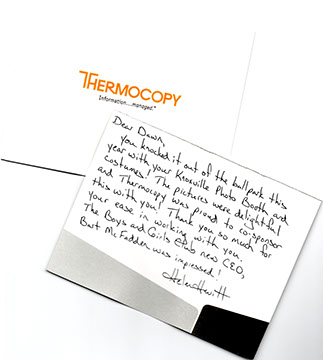 THERMOCOPY
Information...managed.™
Dear Dawn,
You knocked it out of the ballpark this
year with your Knoxville Photo Booth and
costumes! The pictures were delightful
and Thermocopy was proud to co-sponsor
this with you! Thank you so much for
your ease in working with you.
The Boys and Girls Club new CEO,
Bart McFadden was impressed!
Helen Hewitt